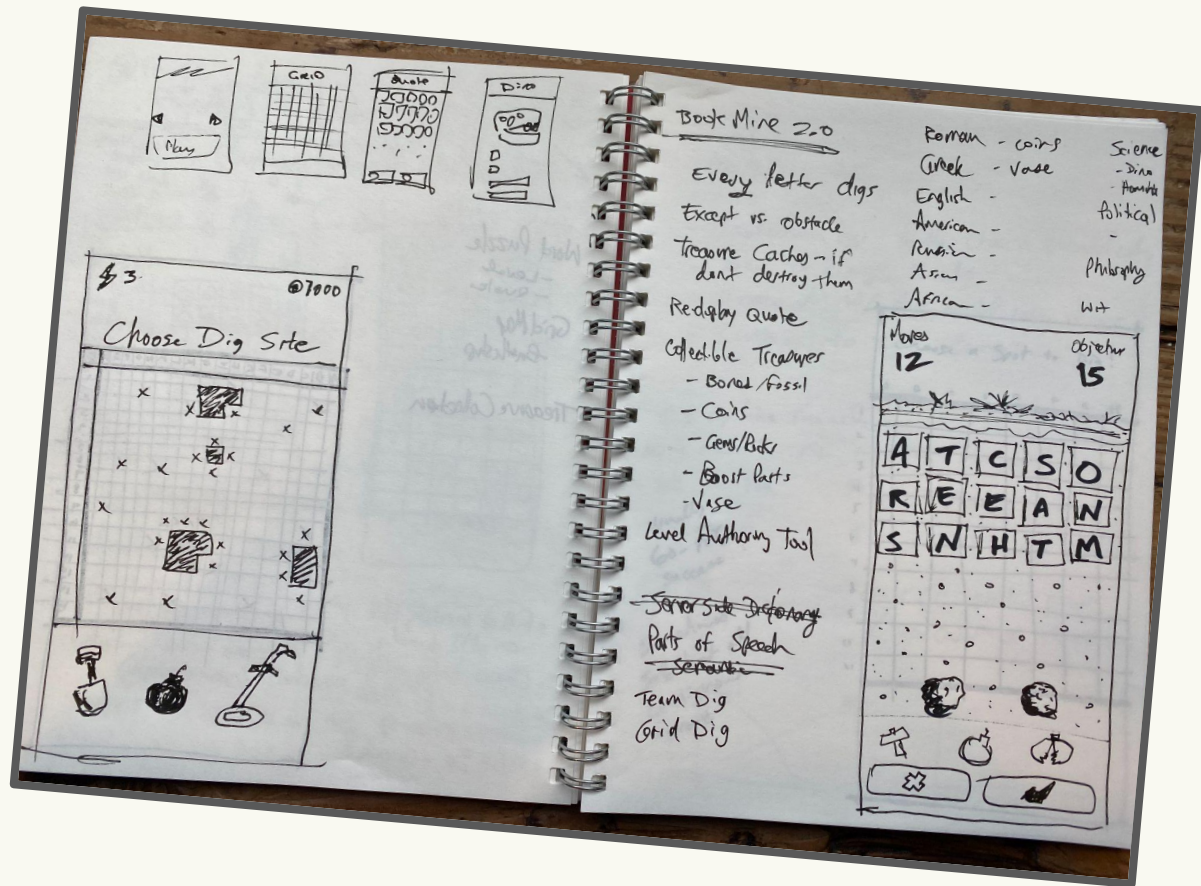 GRID
Quote
Dino
Play
3
@7000
Choose Dig Site
Word Puzzle
Treasure Collection
Book Mine 2.0
Every letter digs
Except vs. obstacle
Treasure Caches - if
dont destroy them
Redisplay Quote
Collectible Treasures
- Bones/Fossil
- Coins
- Gems/Rocks
- Boost Parts
- Vase
Level Authoring Tool
Server Side Dictionary
Parts of Speech
Semantic
Team Dig
Grid Dig
Roman - coins
Greek - Vase
English -
American -
Russian -
Asian -
African -
Science
- Dino
Political
-
Philosophy
Wit
Moves
12
Objective
15
A T C S O
R E E A N
S N H T M